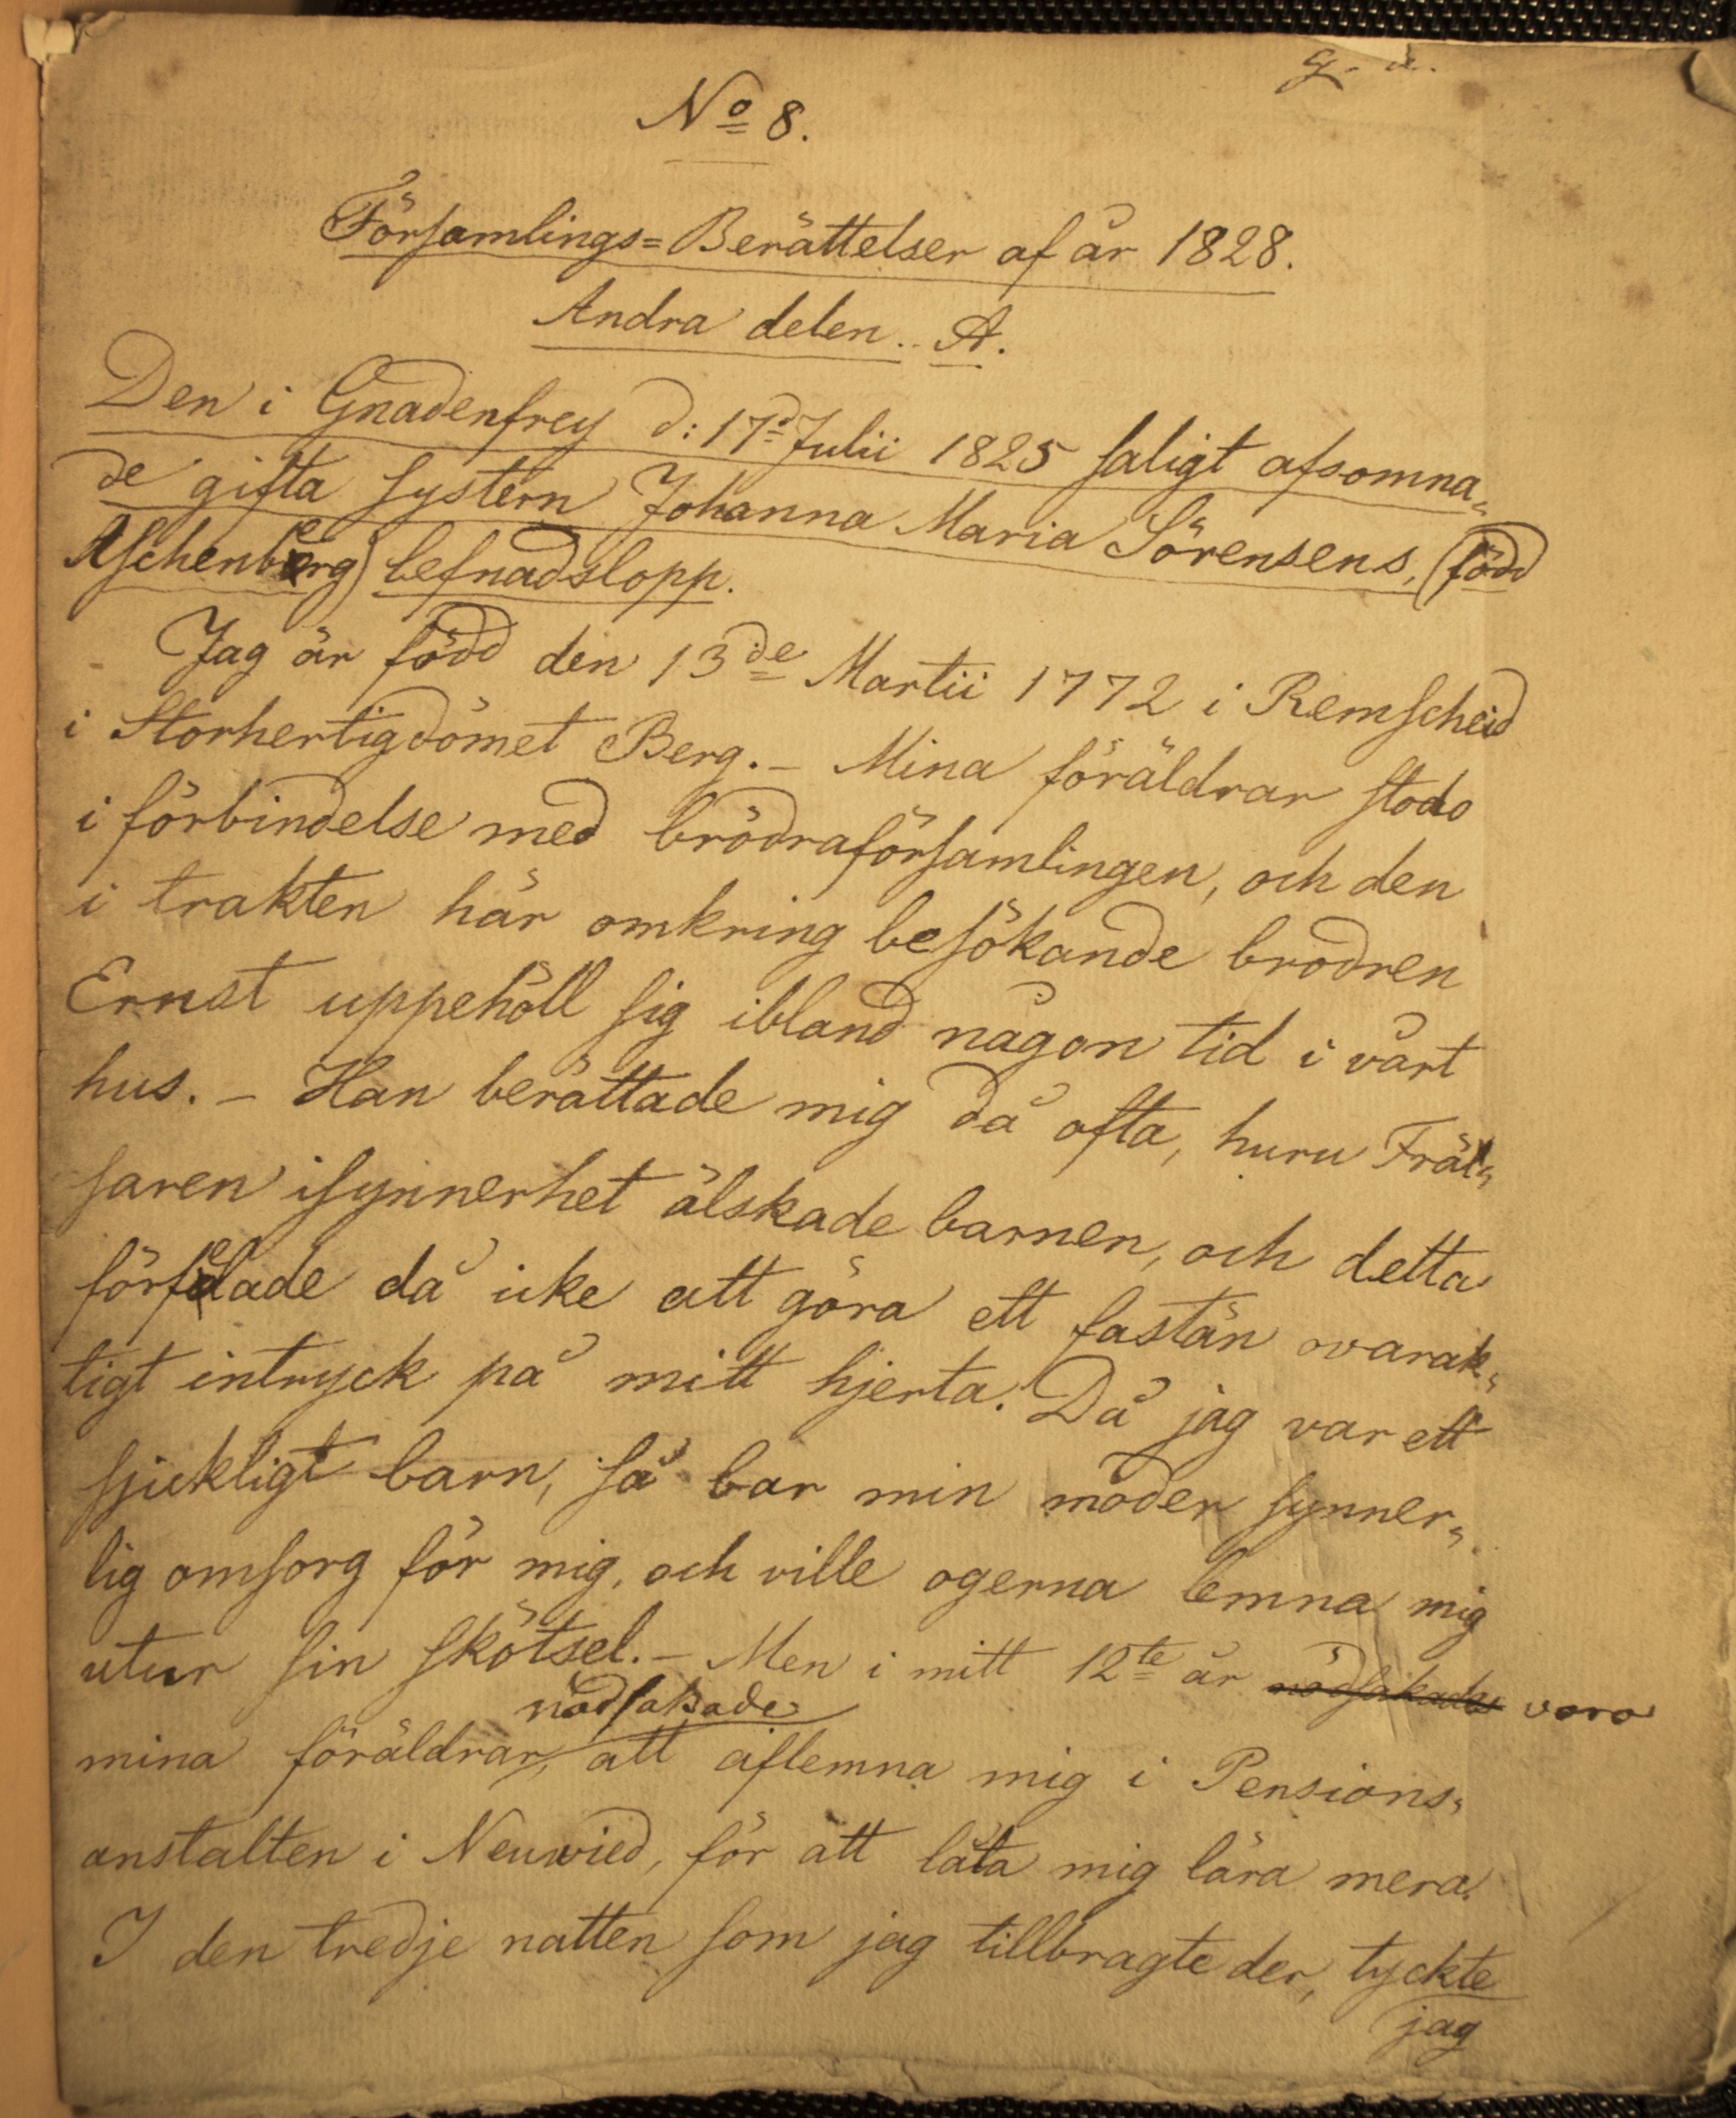 G. u.
No 8.
Församlings=Berättelser af år 1828.
Andra delen.. A.
Den i Gnadenfrey d: 17d Julii 1825 saligt afsomna„
de gifta systern Johanna Maria Sörensens, (född
Aschenberg) lefnadslopp.
Jag är född den 13de Martii 1772 i Remscheid
i Storhertigdömet Berg. – Mina föräldrar stodo
i förbindelse med brödraförsamlingen, och den
i trakten här omkring besökande brodren
Ernst uppehöll sig ibland någon tid i vårt
hus. – Han berättade mig då ofta, huru Fräl„
saren isynnerhet älskade barnen, och detta
förfelade då icke att göra ett fastän ovarak„
tigt intryck på mitt hjerta. Då jag var ett
sjukligt barn, så bar min moder synner„
lig omsorg för mig, och ville ogerna lemna mig
utur sin skötsel. – Men i mitt 12te år nödsakades voro
nödsakade
mina föräldrar, att aflemna mig i Pensions„
anstalten i Neuwied, för att låta mig lära mera.
I den tredje natten som jag tillbragte der, tyckte
jag